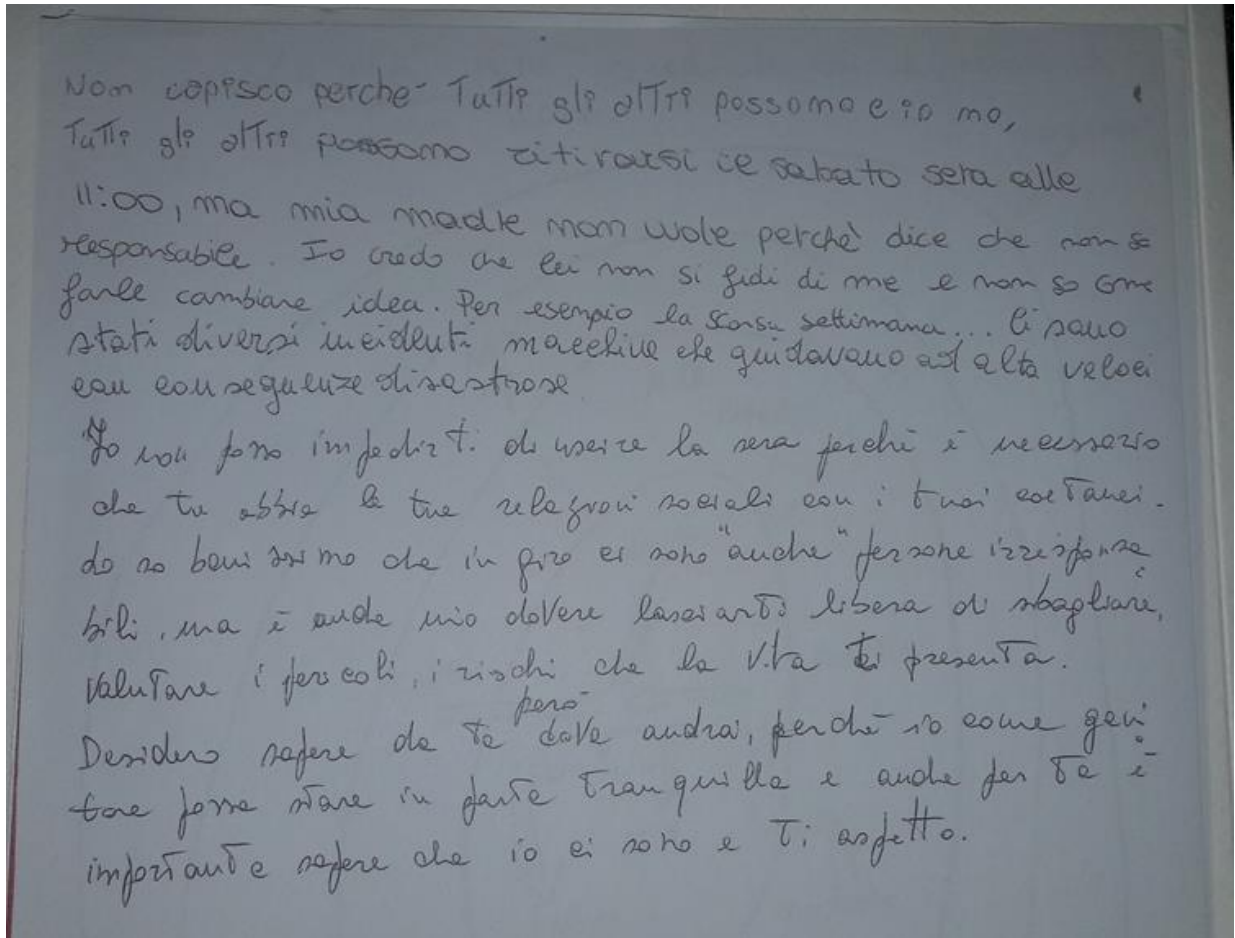 Non capisco perchè Tutti gli altri possono e io no,
Tutti gli altri possono ritirarsi ie sabato sera alle
11:00, ma mia madre non vuole perchè dice che non so
responsabile. Io credo che lei non si fidi di me e non so come
farle cambiare idea. Per esempio la scorsa settimana... Ci sono
stati diversi incidenti macchine che guidavano ad alta veloci
con conseguenze disastrose
Io non posso impedirti di uscire la sera perchè è necessario
che tu abbia le tue relazioni sociali con i tuoi coetanei.
Io so benissimo che in giro ci sono "anche" persone irresponsa
bili, ma è anche mio dovere lasciarti libera di sbagliare,
valutare i pericoli, i rischi che la vita ti presenta.
Desidero sapere da te però dove andrai, perchè io come geni
tore possa stare in parte tranquilla e anche per te è
importante sapere che io ci sono e ti aspetto.